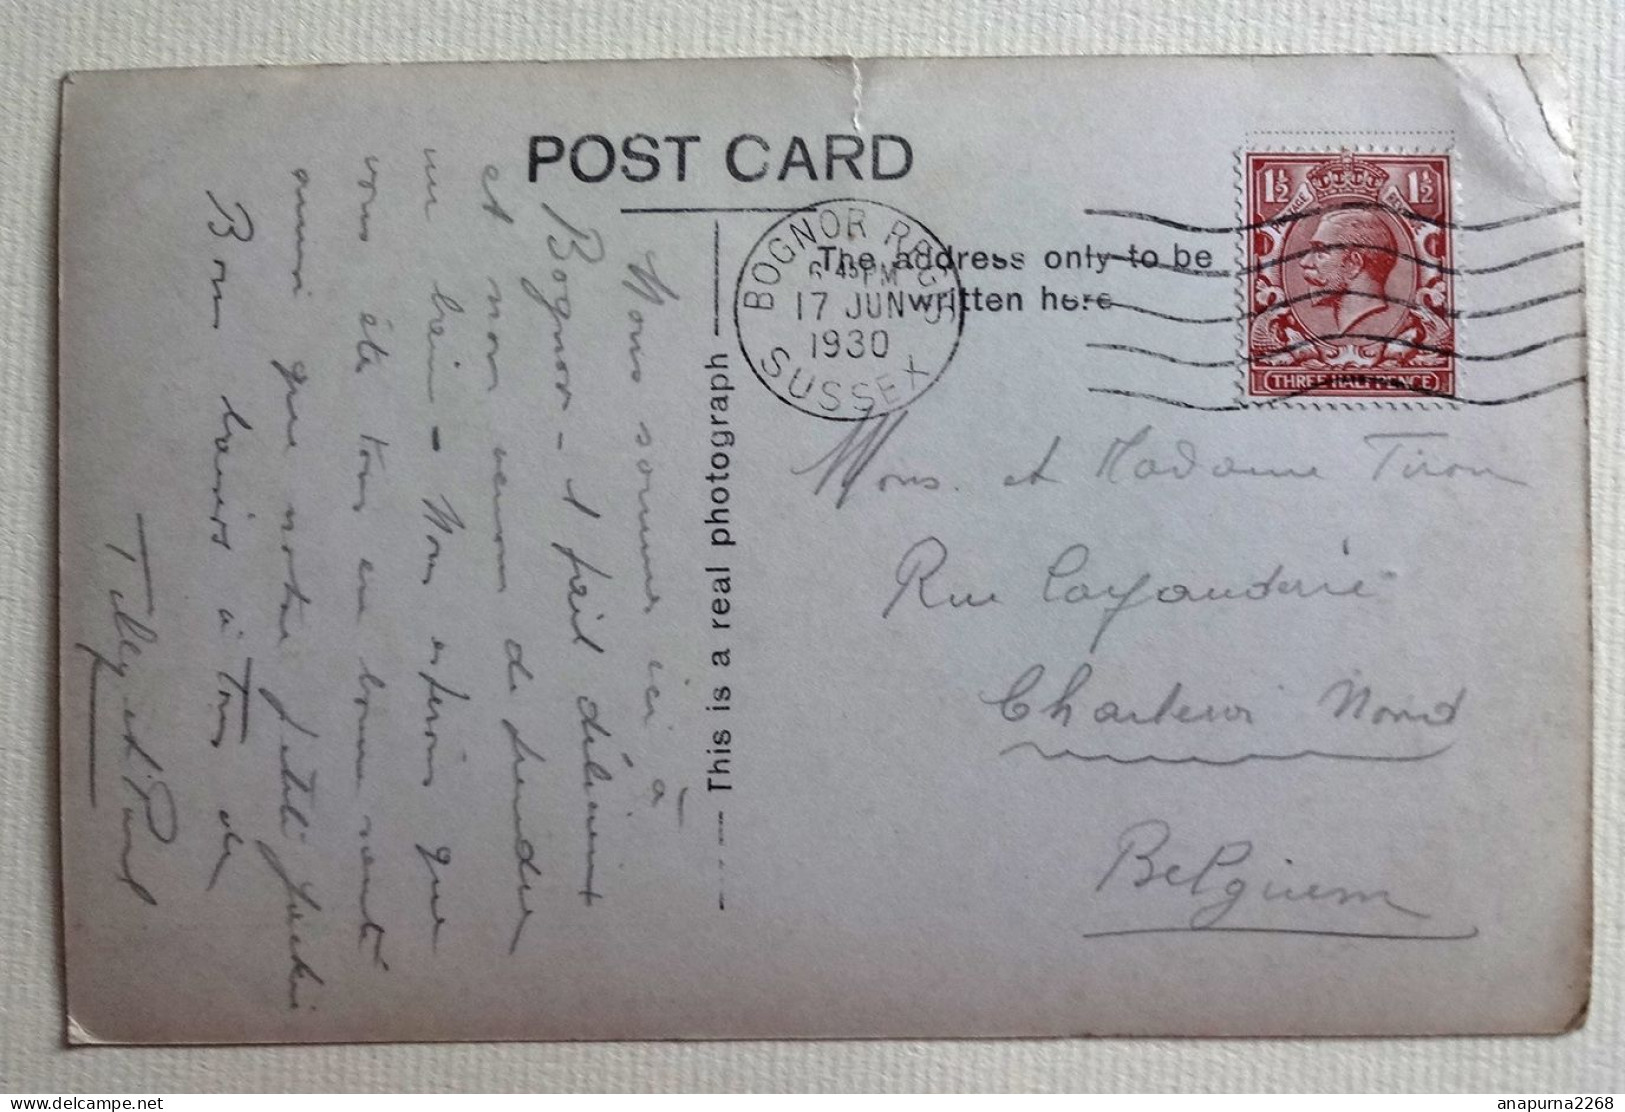 POST CARD
The address only to be
written here
BOGNOR REGIS
6 45 PM
17 JUN
1930
SUSSEX
1½ 1½
POSTAGE REVENUE
THREE HALFPENCE
This is a real photograph
Nous sommes ici à
Bognor - Il fait délicieux
et nous venons de prendre
un bain - Nous espérons que
vous été tous en bonne santé
ainsi que notre petite Jackie
Bons baisers à tous de
et Paul
Mons. et Madame Tiron
Rue
Charleroi Nord
Belgium
anapurna2268